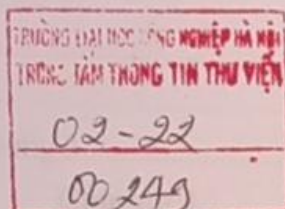 TRƯỜNG ĐẠI HỌC CÔNG NGHIỆP HÀ NỘI
TRUNG TÂM THÔNG TIN THƯ VIỆN
02-22
00249